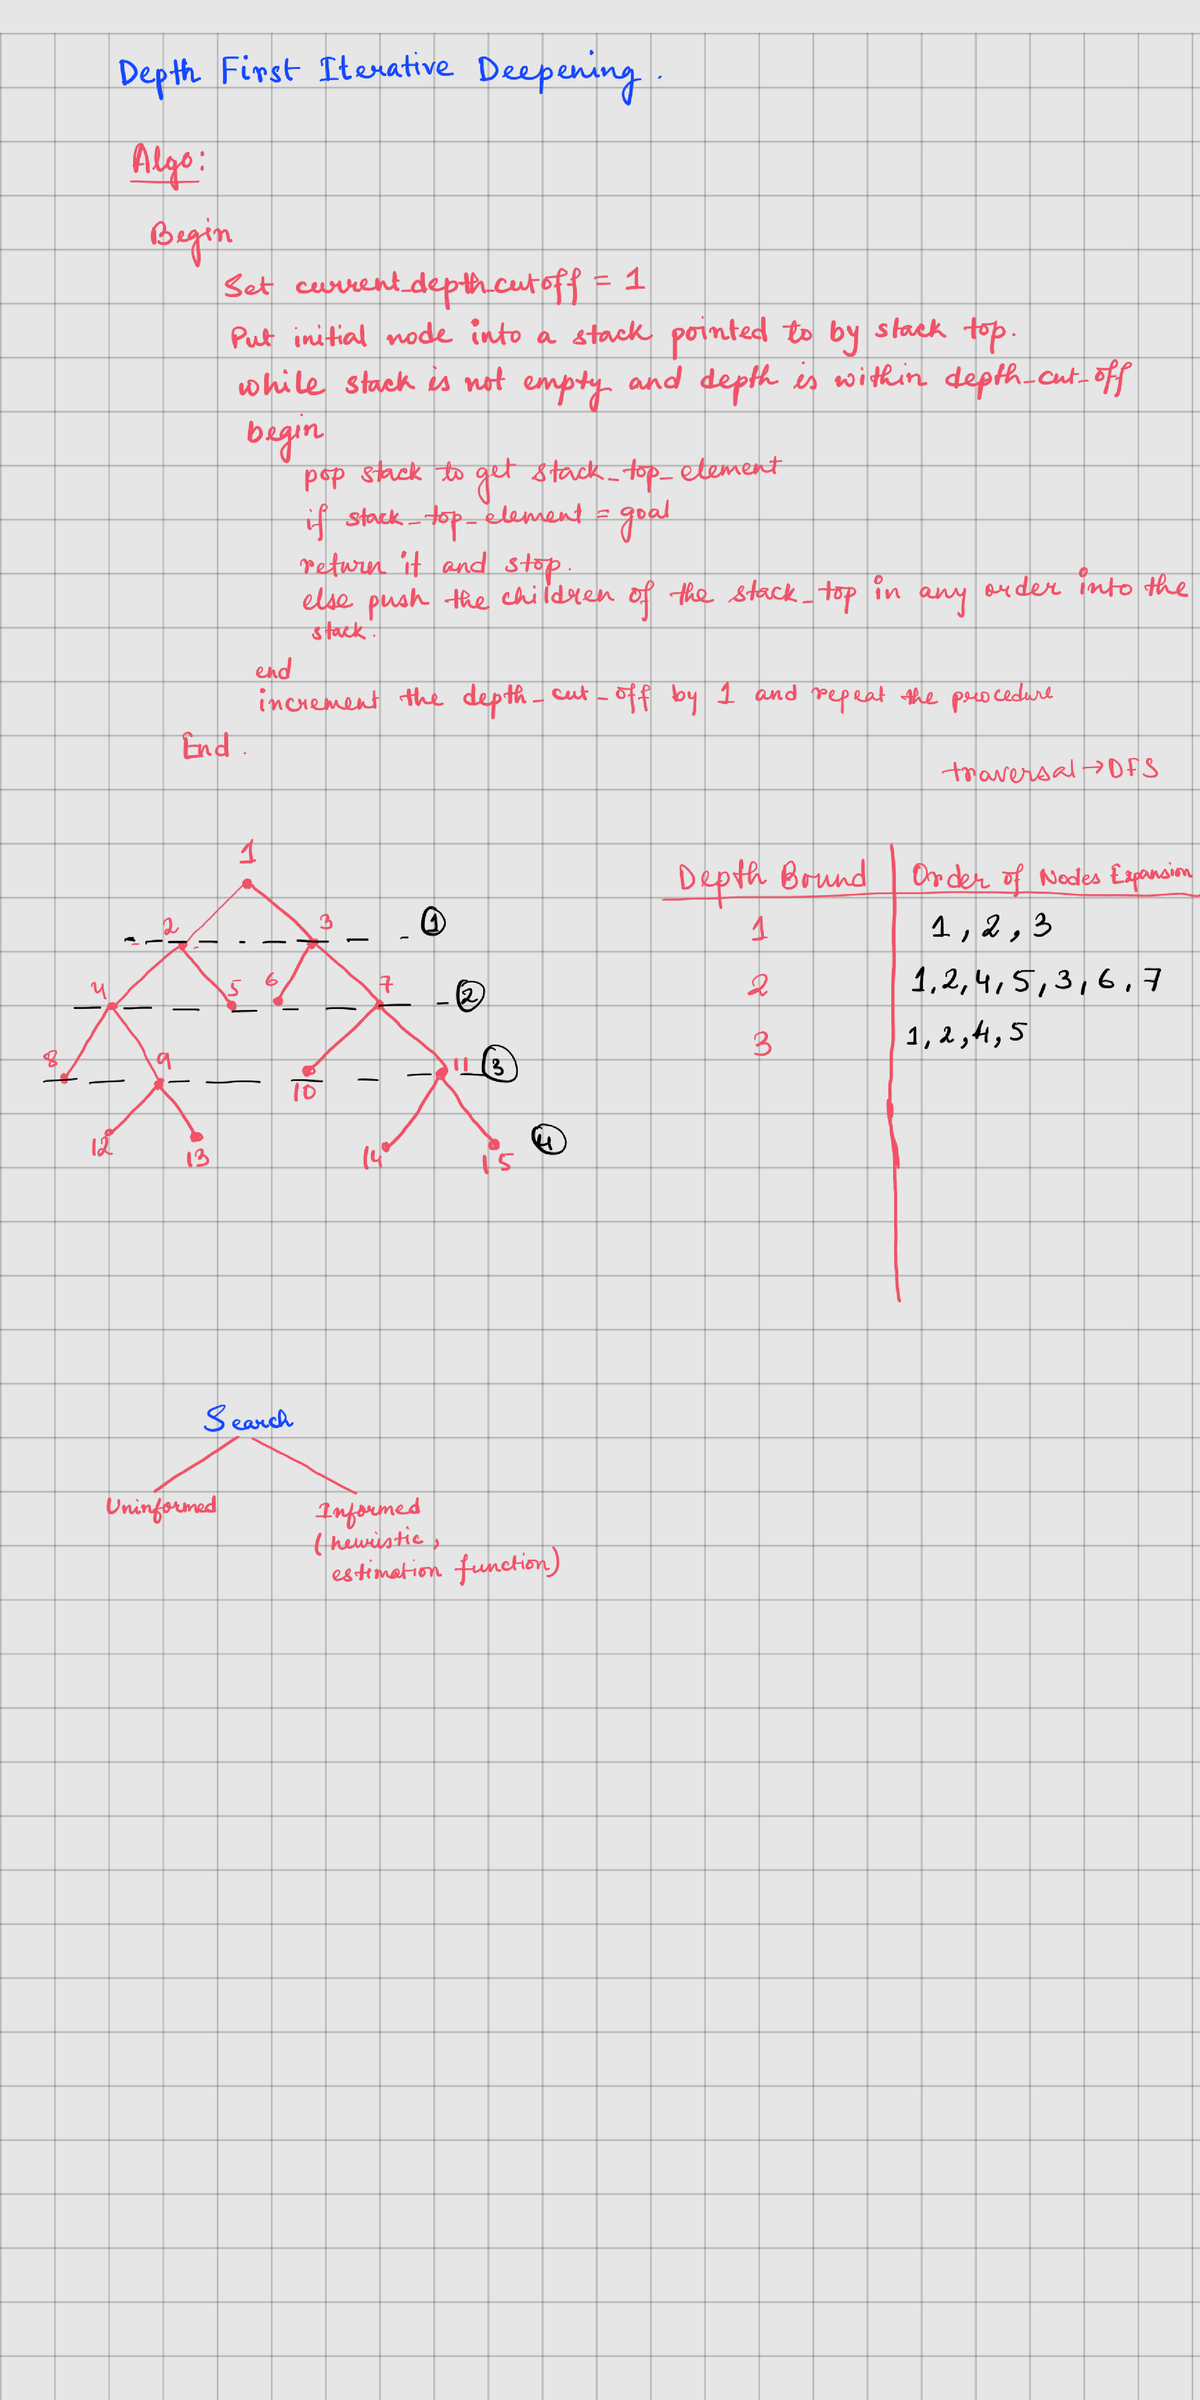 Depth First Iterative Deepening.
Algo:
Begin
Set current_depth_cutoff = 1
Put initial node into a stack pointed to by stack top.
while stack is not empty and depth is within depth_cut_off
begin
pop stack to get stack_top_element
if stack_top_element = goal
return it and stop.
else push the children of the stack_top in any order into the
stack.
end
increment the depth_cut_off by 1 and repeat the procedure
End.
traversal → DFS
1
2 3 ①
4 5 6 7 ②
8 9 10 11 ③
12 13 14 15 ④
Depth Bound Order of Nodes Expansion
1 1, 2, 3
2 1, 2, 4, 5, 3, 6, 7
3 1, 2, 4, 5
Search
Uninformed Informed
(heuristic,
estimation function)